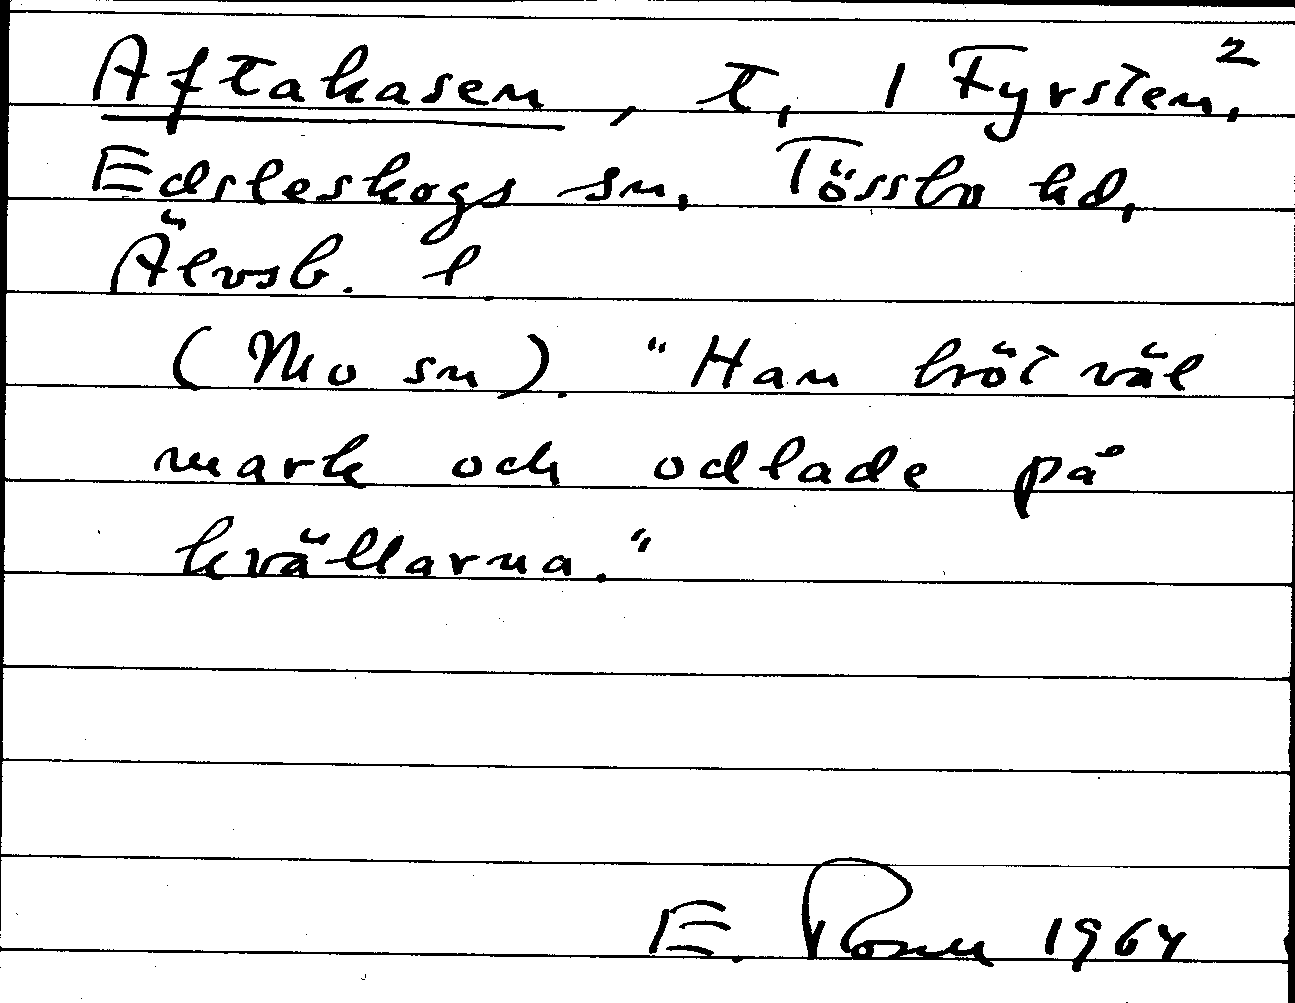 Aftakasen, t, 1 Fyrsten,²
Edsleskogs sn, Tössbo hd,
Älvsb. l
(Mo sn). "Han bröt väl
mark och odlade på
kvällarna."
E. Rosen 1964